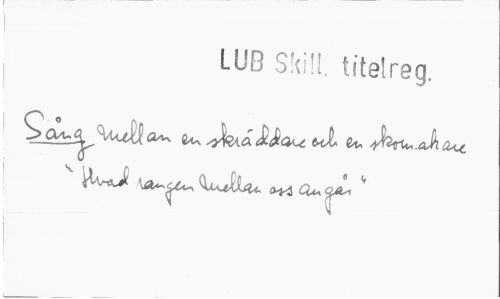 LUB Skill. titelreg.
Sång mellan en skräddare och en skomakare
"Hvad rangen mellan oss angår"